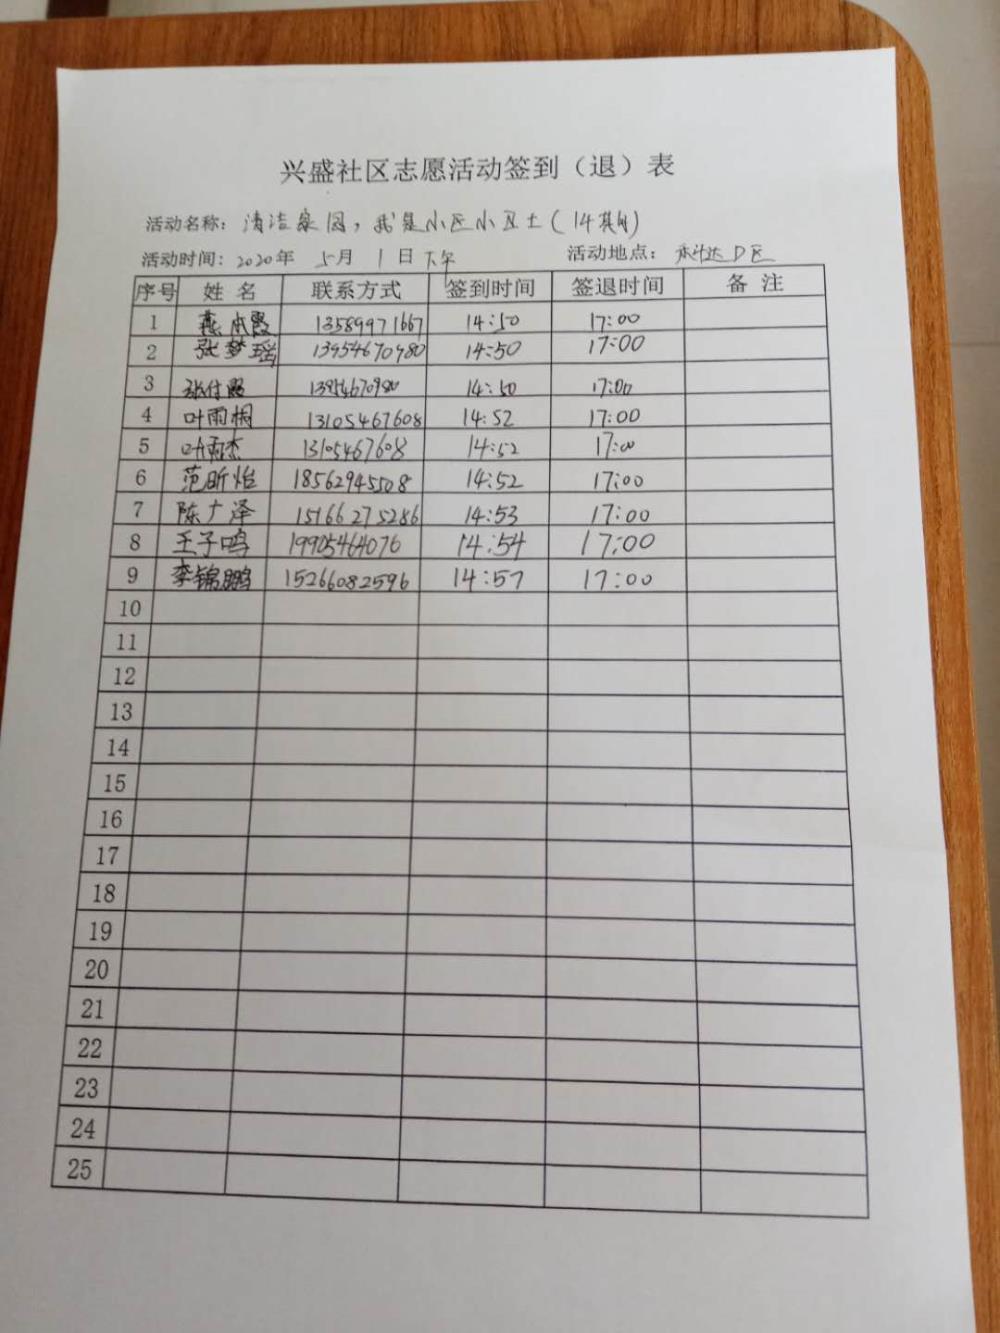 兴盛社区志愿活动签到（退）表
活动名称：清洁家园，我是小区小卫士（14期）
活动时间：2020年 5月 1日下午 活动地点： D区
序号 姓名 联系方式 签到时间 签退时间 备注
1 燕 霞 13589971667 14:50 17:00
2 张梦瑶 13954670980 14:50 17:00
3 张付 13954670980 14:50 17:00
4 叶雨桐 13105467608 14:52 17:00
5 叶雨杰 13105467608 14:52 17:00
6 范昕怡 18562945508 14:52 17:00
7 陈广泽 15166275286 14:53 17:00
8 王子鸣 19905464076 14:54 17:00
9 李锦鹏 15266082596 14:57 17:00
10
11
12
13
14
15
16
17
18
19
20
21
22
23
24
25